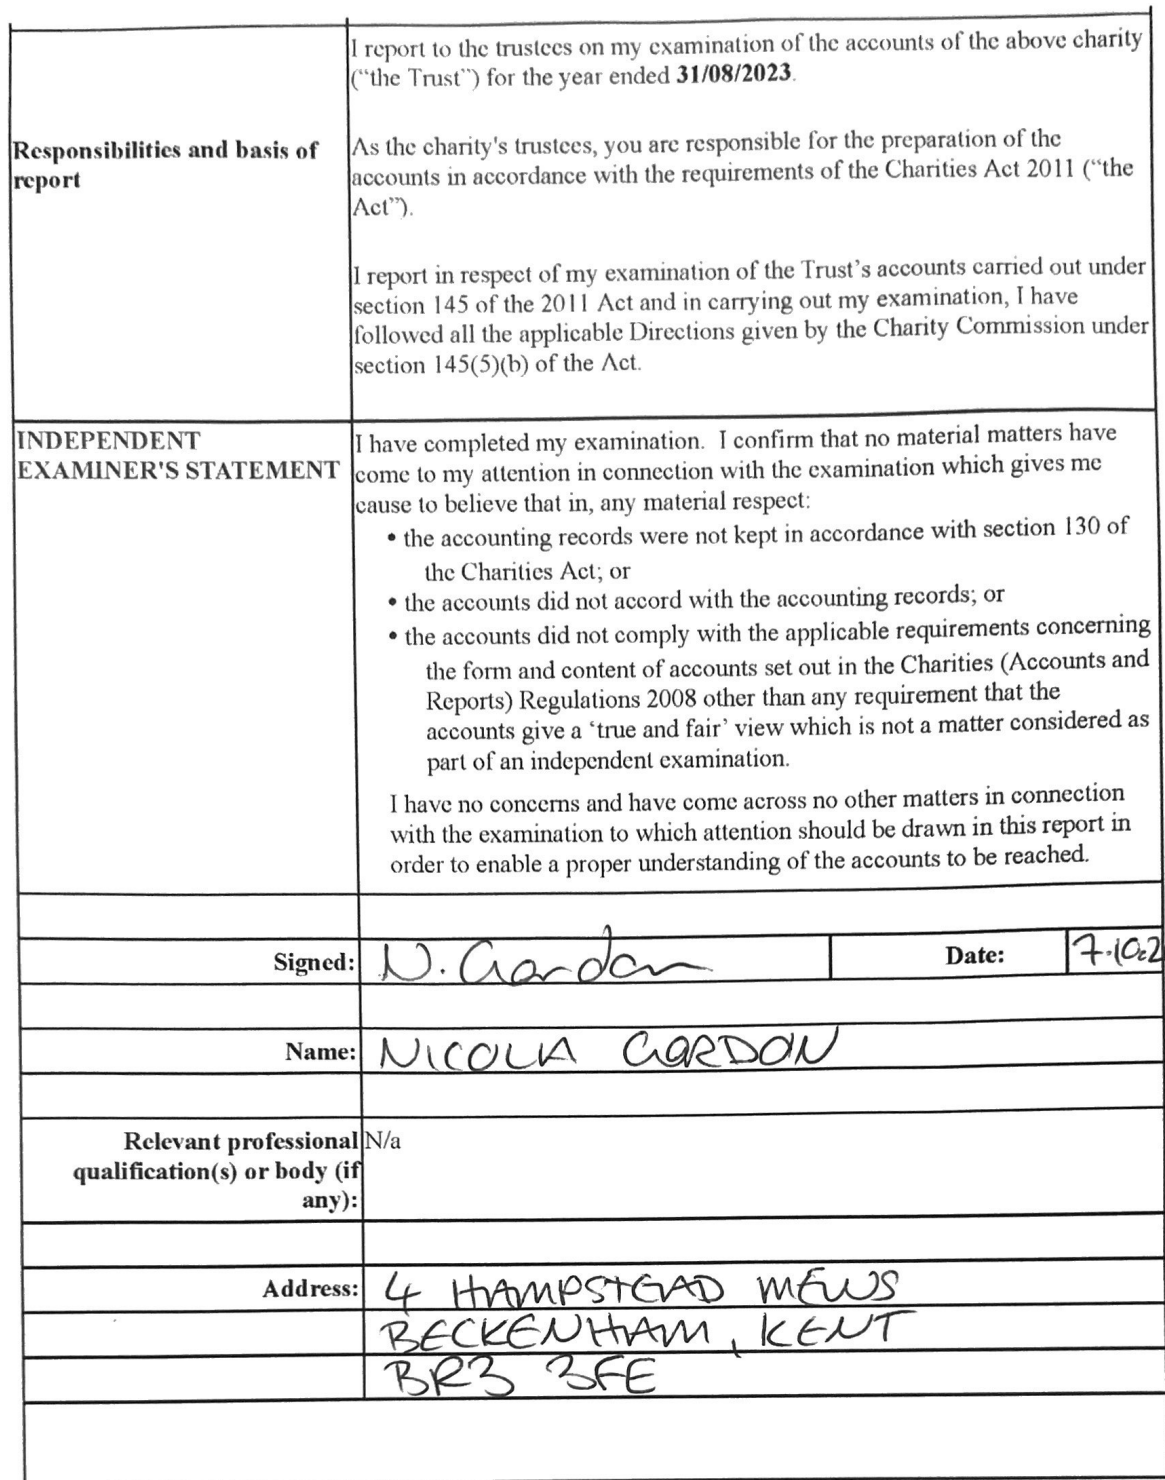 I report to the trustees on my examination of the accounts of the above charity
("the Trust") for the year ended 31/08/2023.
Responsibilities and basis of
report
As the charity's trustees, you are responsible for the preparation of the
accounts in accordance with the requirements of the Charities Act 2011 ("the
Act").
I report in respect of my examination of the Trust's accounts carried out under
section 145 of the 2011 Act and in carrying out my examination, I have
followed all the applicable Directions given by the Charity Commission under
section 145(5)(b) of the Act.
INDEPENDENT
EXAMINER'S STATEMENT
I have completed my examination.  I confirm that no material matters have
come to my attention in connection with the examination which gives me
cause to believe that in, any material respect:
• the accounting records were not kept in accordance with section 130 of
the Charities Act; or
• the accounts did not accord with the accounting records; or
• the accounts did not comply with the applicable requirements concerning
the form and content of accounts set out in the Charities (Accounts and
Reports) Regulations 2008 other than any requirement that the
accounts give a 'true and fair' view which is not a matter considered as
part of an independent examination.
I have no concerns and have come across no other matters in connection
with the examination to which attention should be drawn in this report in
order to enable a proper understanding of the accounts to be reached.
Signed: N. Gordon Date: 7.10.2
Name: NICOLA GORDON
Relevant professional N/a
qualification(s) or body (if
any):
Address: 4 HAMPSTEAD MEWS
BECKENHAM, KENT
BR3 3FE